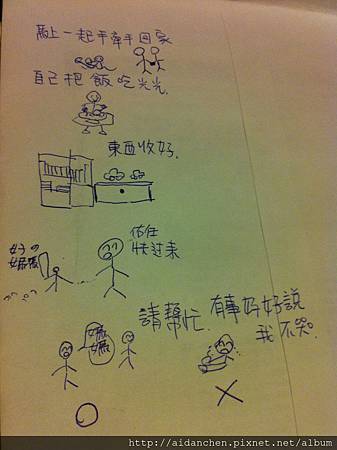 馬上一起手牽手回家
自己把飯吃光光.
東西收好.
好の
媽媽
佑任
快過來
請幫忙. 有事好好說
我不哭.
媽媽
http://aidanchen.pixnet.net/album